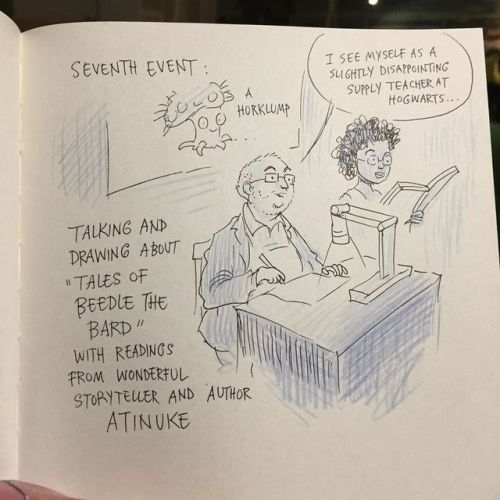 SEVENTH EVENT:
A
HORKLUMP
I SEE MYSELF AS A
SLIGHTLY DISAPPOINTING
SUPPLY TEACHER AT
HOGWARTS...
TALKING AND
DRAWING ABOUT
"TALES OF
BEEDLE THE
BARD"
WITH READINGS
FROM WONDERFUL
STORYTELLER AND AUTHOR
ATINUKE